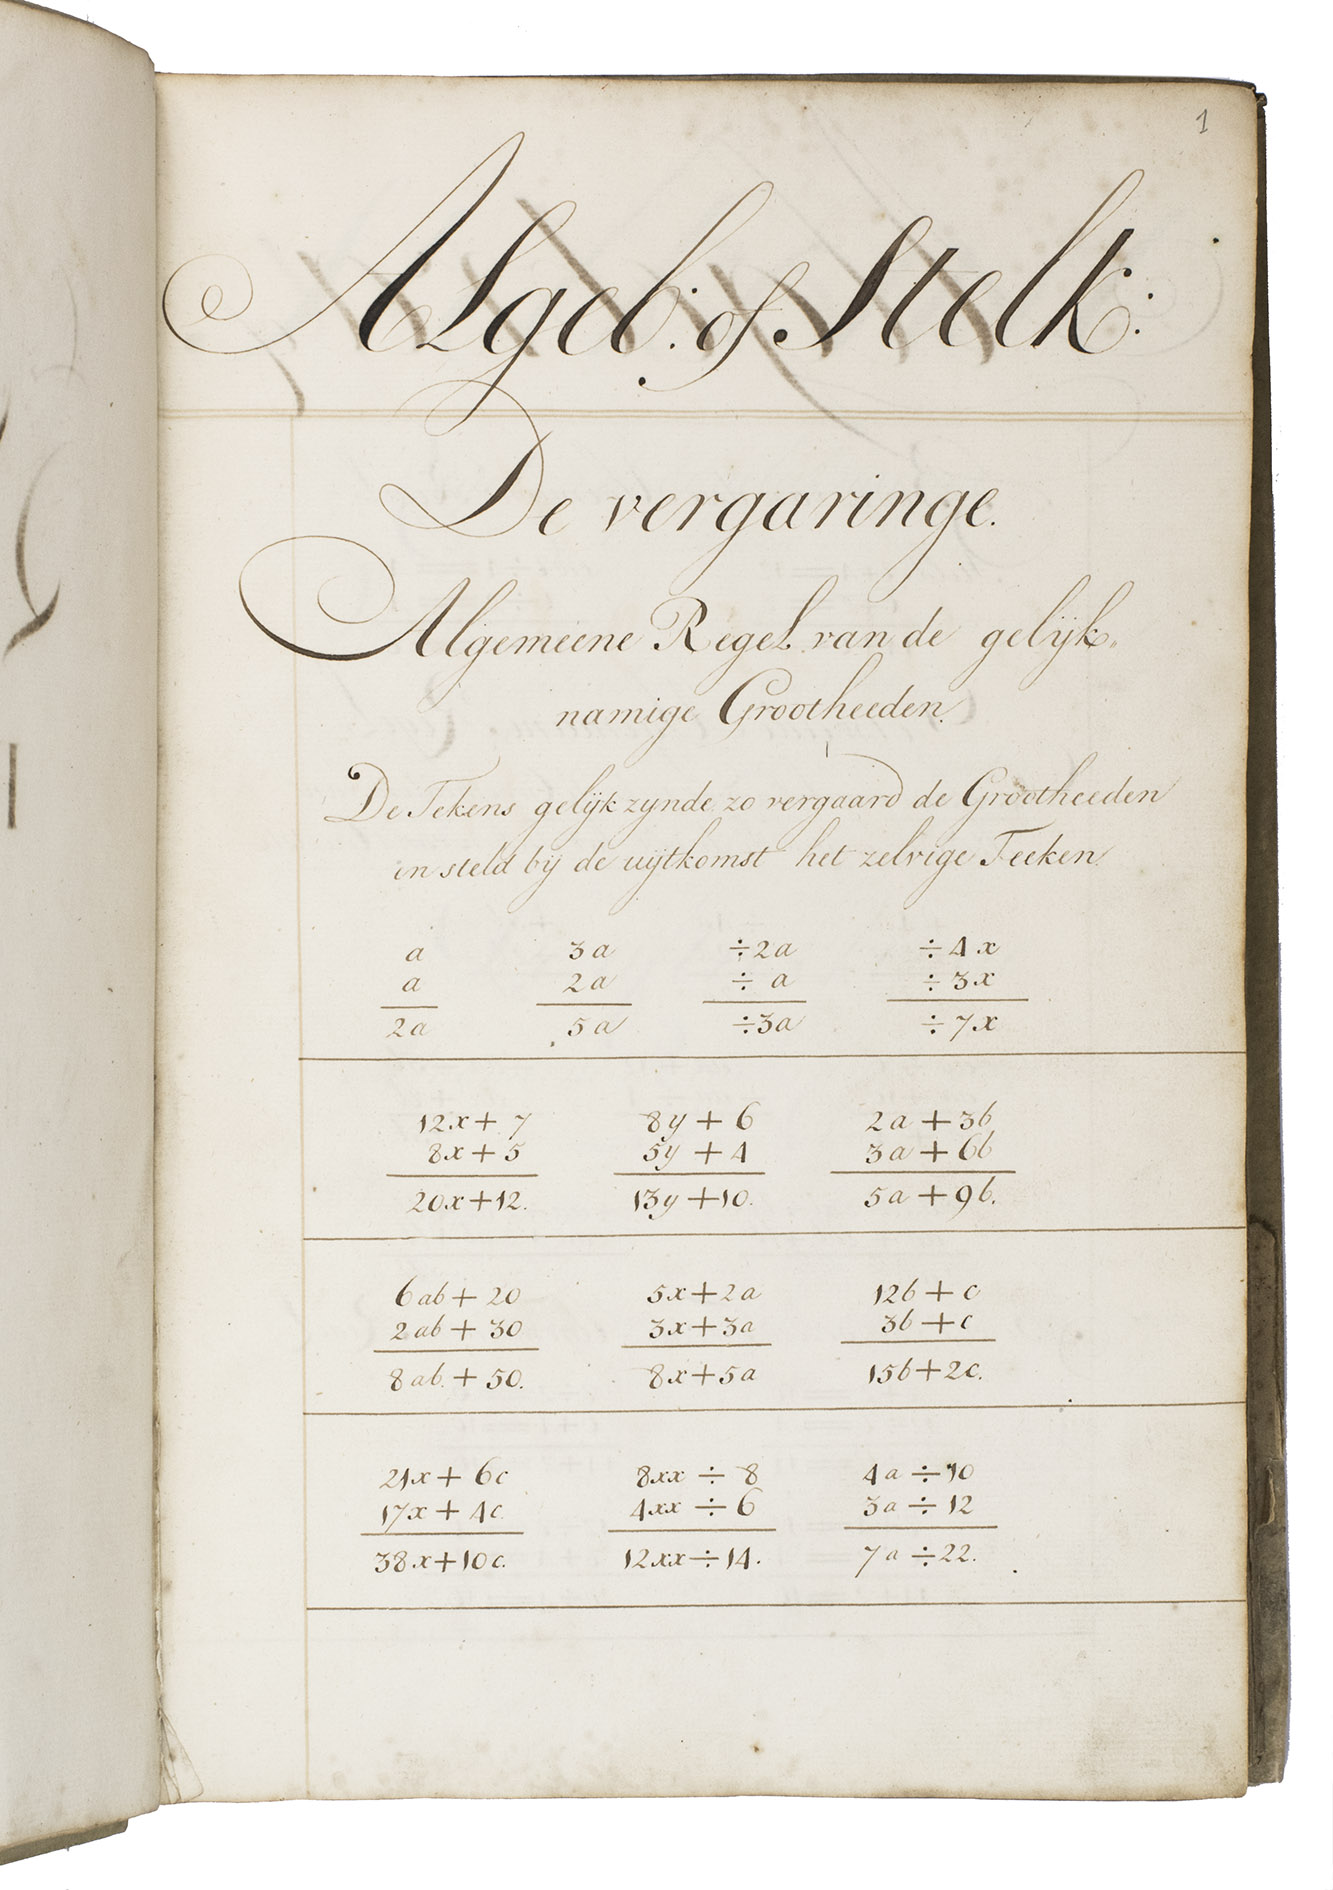 1
Algeb: of Stelk:
De vergaringe.
Algemeene Regel van de gelijk„
namige Grootheeden.
De Tekens gelijk zynde zo vergaard de Grootheeden
en steld bij de uijtkomst het zelvige Teeken
a 3a ÷2a ÷4x
a 2a ÷ a ÷3x
2a 5a ÷3a ÷7x
12x+7 8y+6 2a+3b
8x+5 5y+4 3a+6b
20x+12. 13y+10. 5a+9b.
6ab+20 5x+2a 12b+c
2ab+30 3x+3a 3b+c
8ab.+50. 8x+5a 15b+2c.
21x+6c 8xx÷8 4a÷10
17x+4c. 4xx÷6 3a÷12
38x+10c. 12xx÷14. 7a÷22.